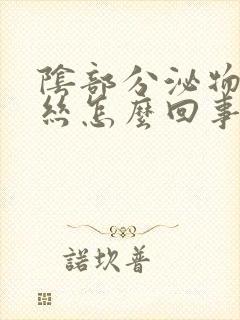 陰部分泌物
絲怎麼回事
諾坎普